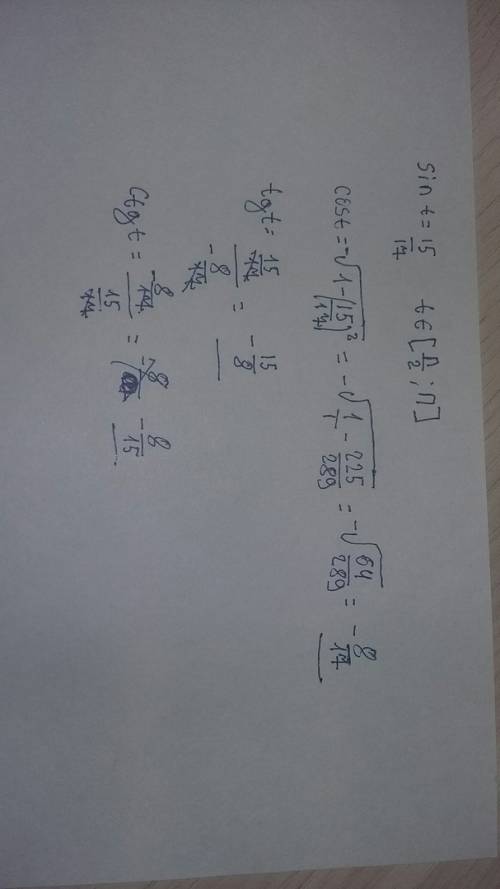 sin t = 15/17 t ∈ [π/2; π]
cos t = -√(1 - (15/17)²) = -√(1/1 - 225/289) = -√(64/289) = -8/17
tg t = (15/17)/(-8/17) = -15/8
ctg t = (-8/17)/(15/17) = -8/15